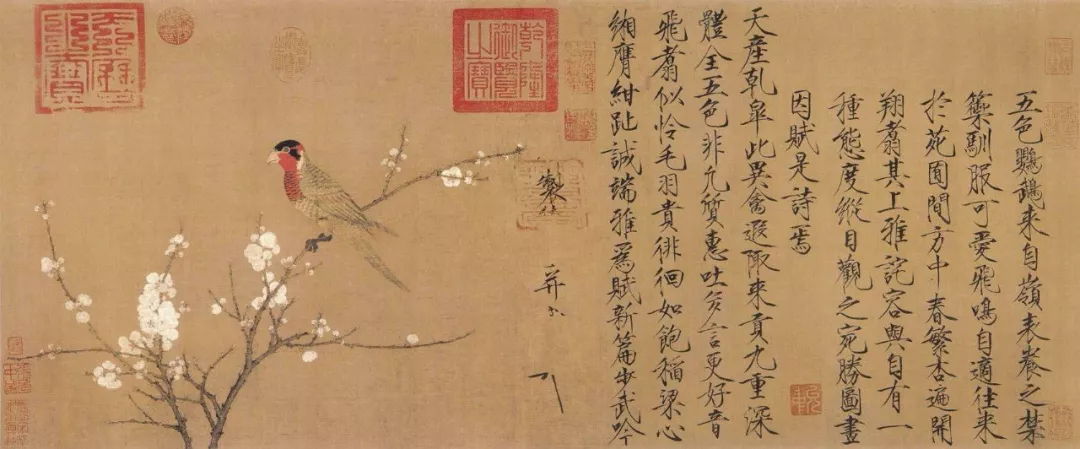 五色鸚鵡来自嶺表養之禁
籞馴服可愛飛鳴自適往来
於苑囿間方中春繁杏遍開
翔翥其上雅詫容與自有一
種態度縱目觀之宛勝圖畫
因賦是詩焉
天產乾皐此異禽遐陬来貢九重深
體全五色非凡質惠吐多言更好音
飛翥似怜毛羽貴徘徊如飽稻粱心
緗膺紺趾誠端雅為賦新篇步武吟
乾隆御覽之寶
製
并书